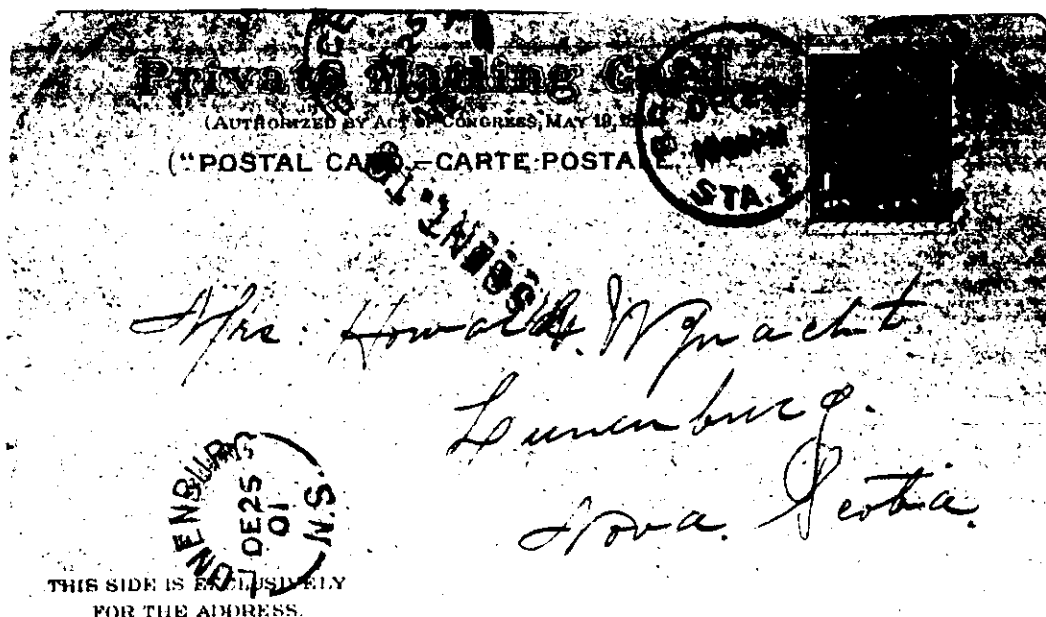 Private Mailing Card
(AUTHORIZED BY ACT OF CONGRESS, MAY 19,
("POSTAL CARD.—CARTE POSTALE
STA.
Mrs. Howard
Lunenburg.
Nova Scotia.
LUNENBURG
DE 25
01
N.S.
THIS SIDE IS EXCLUSIVELY
FOR THE ADDRESS.